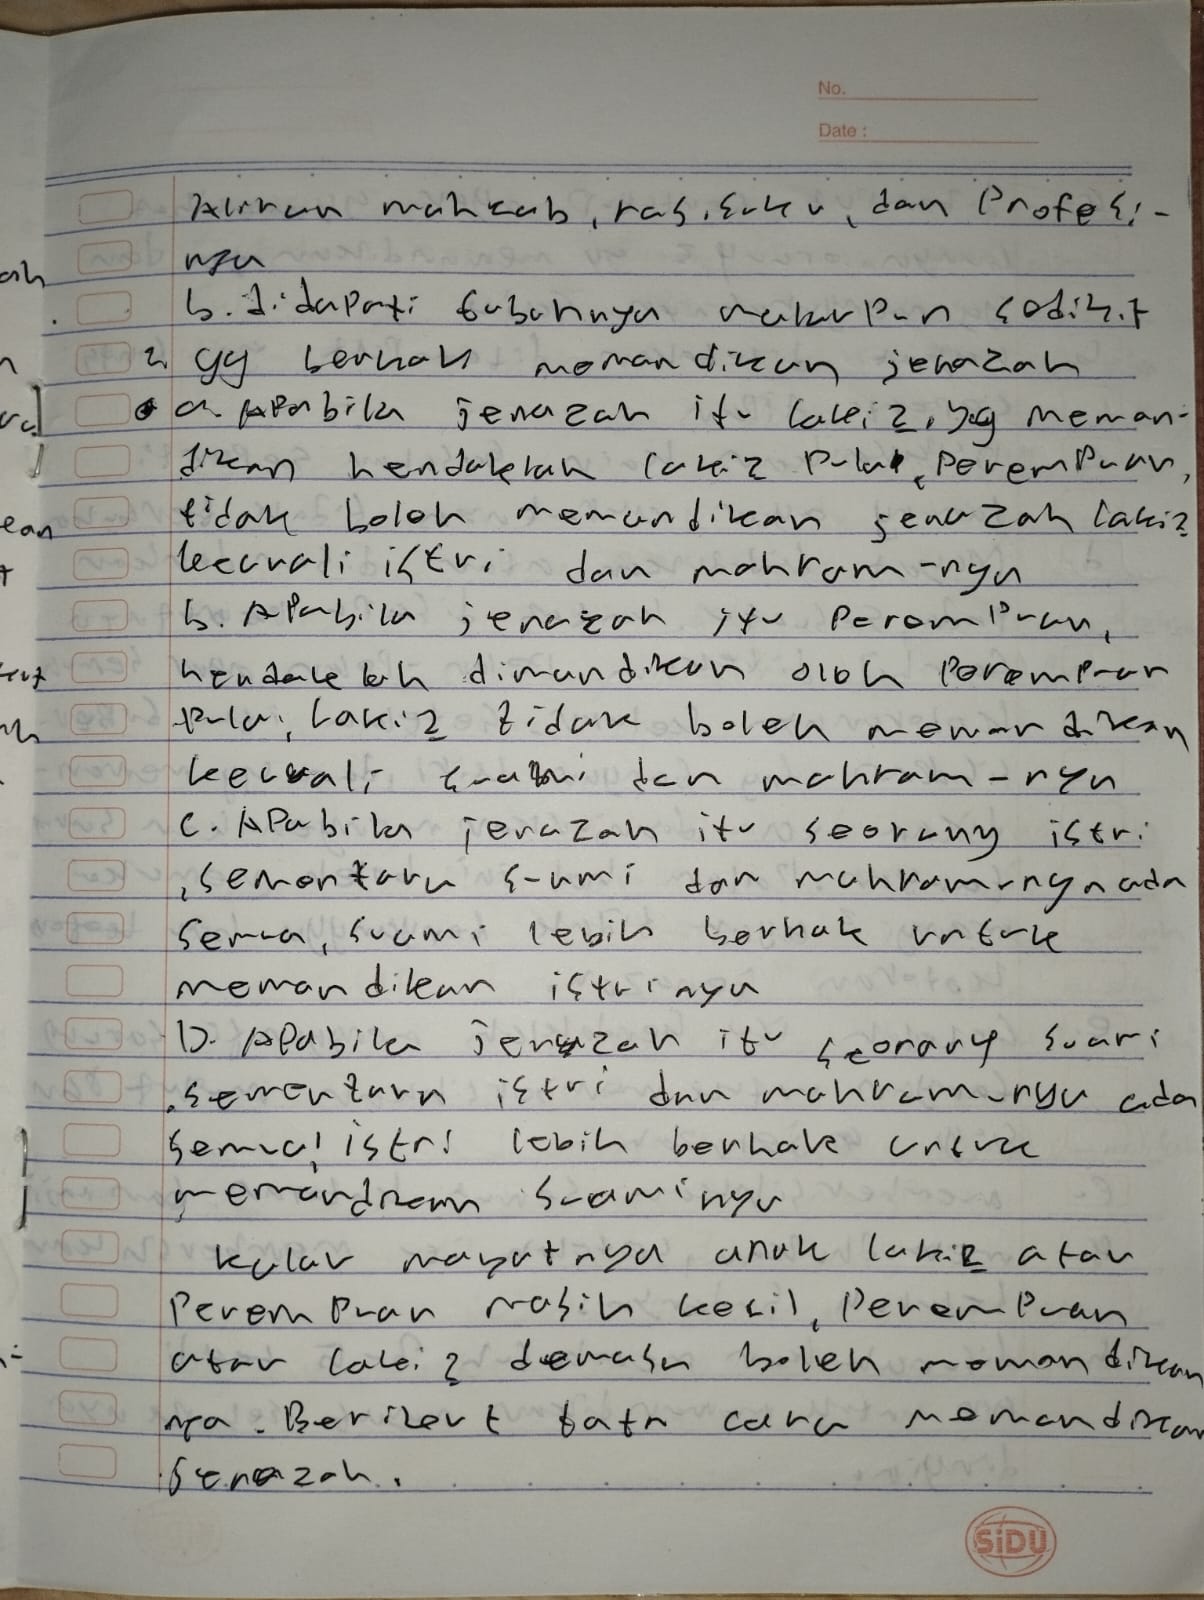 No.
Date :
Aliran mahzab, ras, suku, dan Profesi-
nya
b. didapati tubuhnya walaupun sedikit
2. yg berhak memandikan jenazah
a. Apabila jenazah itu laki2, yg meman-
dikan hendaklah laki2 pula, perempuan,
tidak boleh memandikan jenazah laki2
kecuali istri dan mahram-nya
b. Apabila jenazah itu Perempuan,
hendaklah dimandikan oleh Perempuan
pula, laki2 tidak boleh memandikan
kecuali suami dan mahram-nya
c. Apabila jenazah itu seorang istri
, sementara suami dan mahram-nya ada
semua, suami lebih berhak untuk
memandikan istrinya
D. Apabila jenazah itu seorang suami
, sementara istri dan mahram-nya ada
semua, istri lebih berhak untuk
memandikan suaminya
kalau mayatnya anak laki2 atau
Perempuan masih kecil, Perempuan
atau laki2 dewasa boleh memandikan
nya. Berikut tata cara memandikan
Jenazah.
SiDU